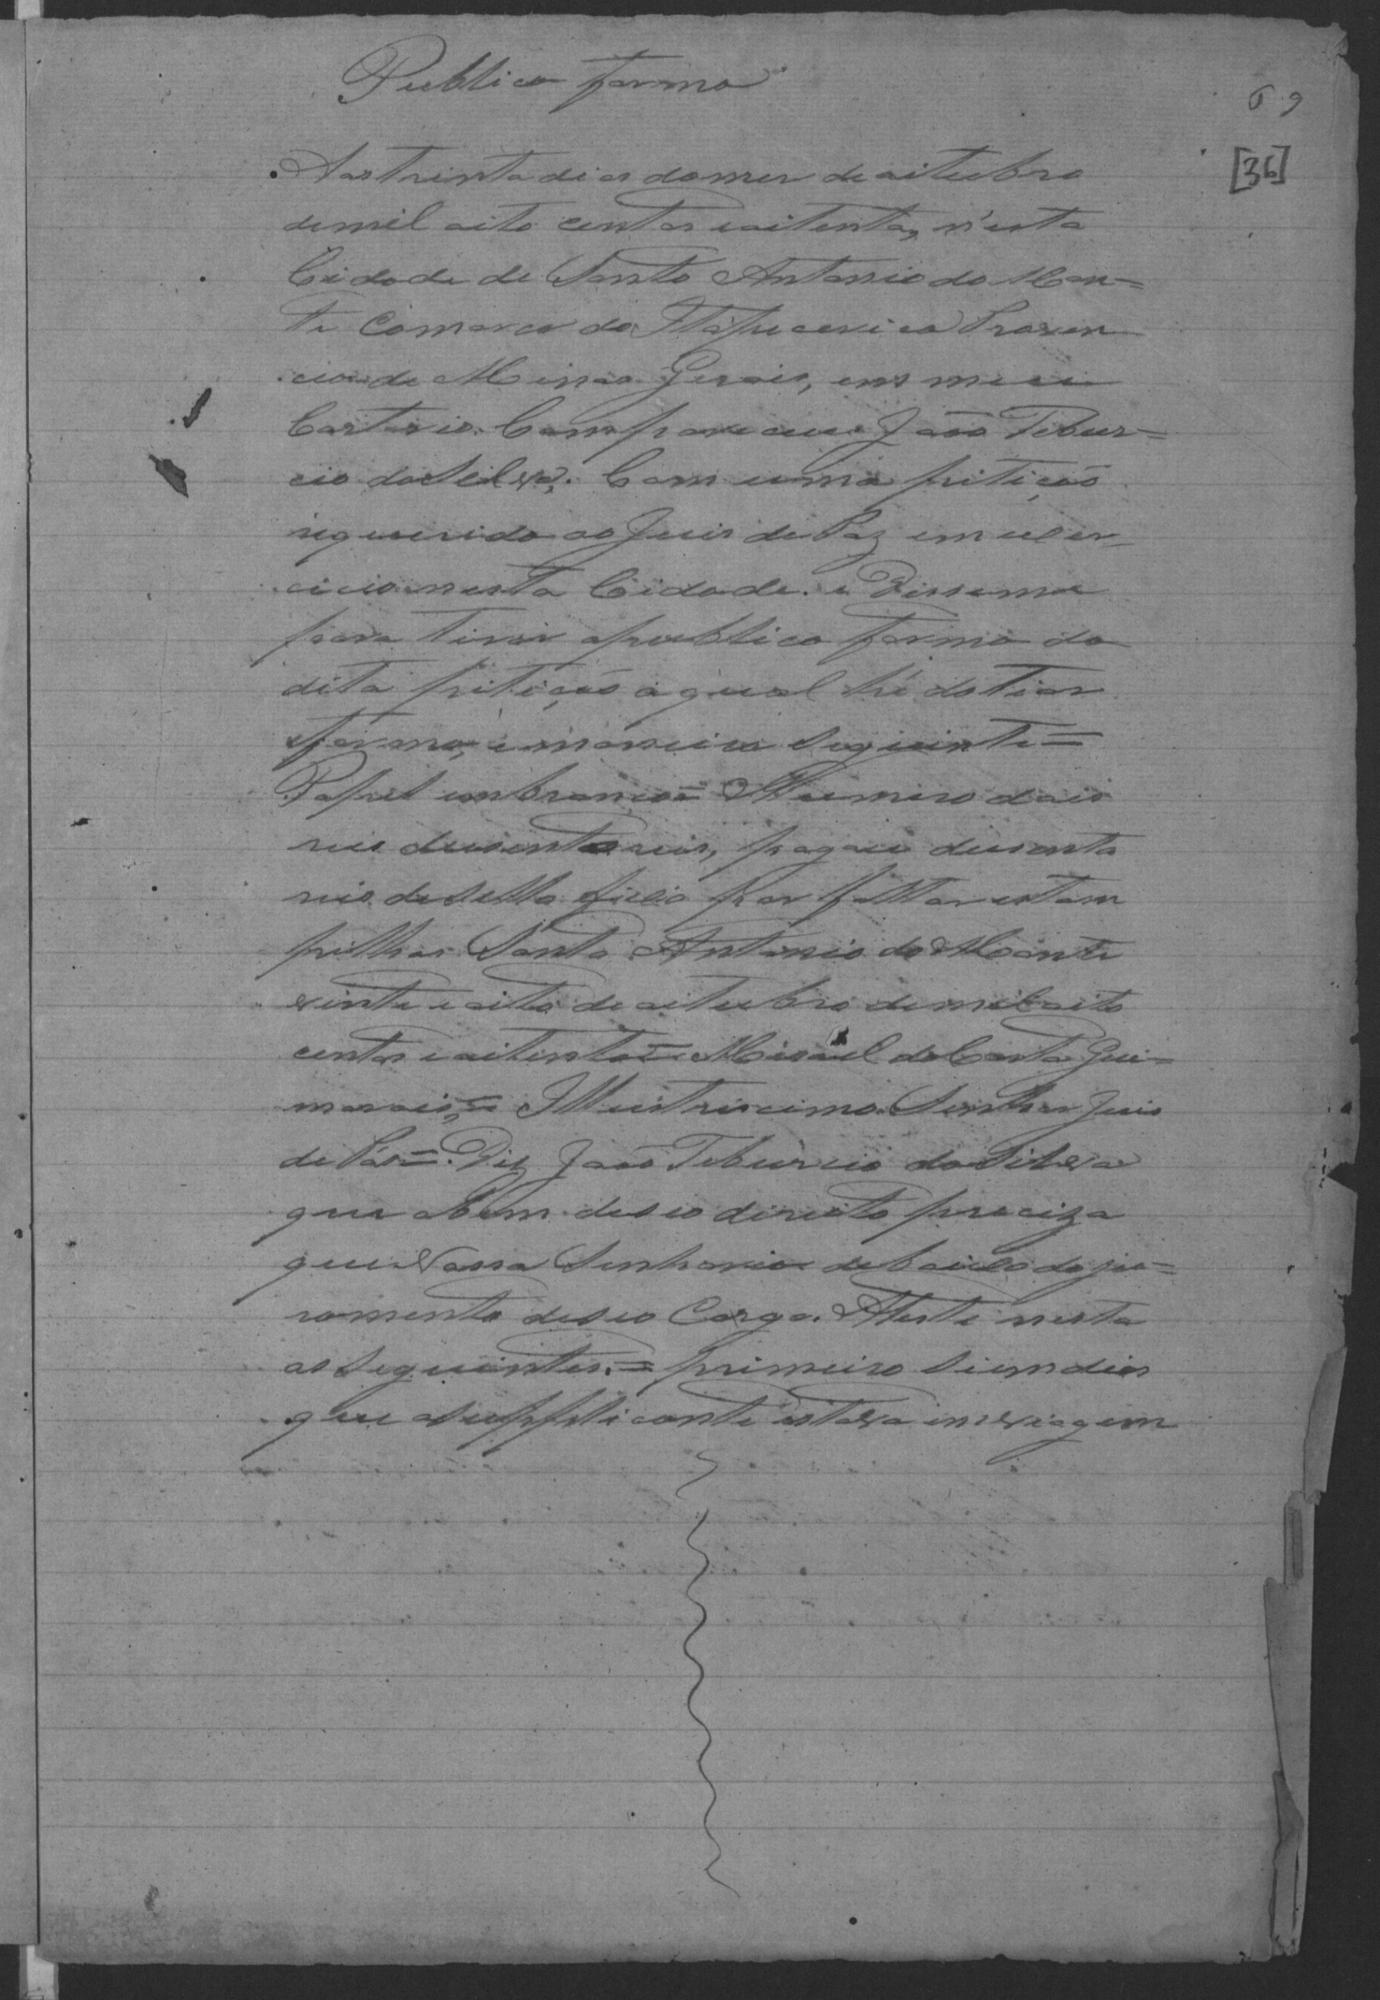 Publica forma
69
[36]
Aos trinta dias do mes de oitubro
de mil oito centos e oitenta, n'esta
Cidade de Santo Antonio do Mon=
te Comarca do Itapecerica Proven
cia de Minas Gerais, em meu
Cartorio. Compareceu João Tibur=
cio da Silva, Com uma pitição
riquerida ao Juis de Paz em exer-
cicio nesta Cidade. e Disseme
para tirar apublica forma da
dita pitição a qual hé do tior
forma, e maneira seguinte=
Papel em branco= Numero dois
reis dusentos reis, pagou dusento
reis de sello fixo por faltar estam
pilhas Santo Antonio do Monte
vinte e oito de oitubro de mil oito
centos e oitenta= Misael da Costa Gui=
marais= Illustriscimo Senhor Juis
de Pás=. Diz João Tiburcio da Silva
que abem deseo direito preciza
que Vossa Senhoria debaixo do ju=
ramento deseo Cargo. Ateste nesta
as seguintes.= primeiro siem dias
que asupplicante estava in viagem